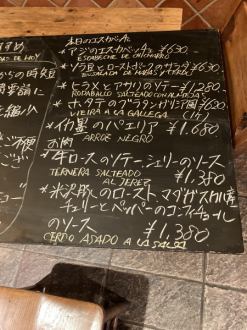 本日のエスカベッチェ
*アジのエスカベッチェ ¥630
ESCABECHE DE CHICHORRO
*ソラ豆とローストポークのサラダ ¥630
ENSALADA DE HABAS Y CERDO
*ヒラメとアサリのソテー ¥1,280
RODABALLO SALTEADO CON ALMEJAS
*ホタテのグラタンガリシア風 ¥630
VIEIRA A LA GALLEGA (1ケ)
*イカ墨のパエリア ¥1,680
ARROZ NEGRO
お肉
*牛ロースのソテーシェリーのソース
TERNERA SALTEADO ¥1,380
AL JEREZ
*米沢豚のロースト、マダガスカル産
チェリーとペッパーのコンフィチュール
のソース ¥1,380
CERDO ASADO A LA SALSA
すめ
DE HOY
からの時々豆
要請に
を縮小
ご不便